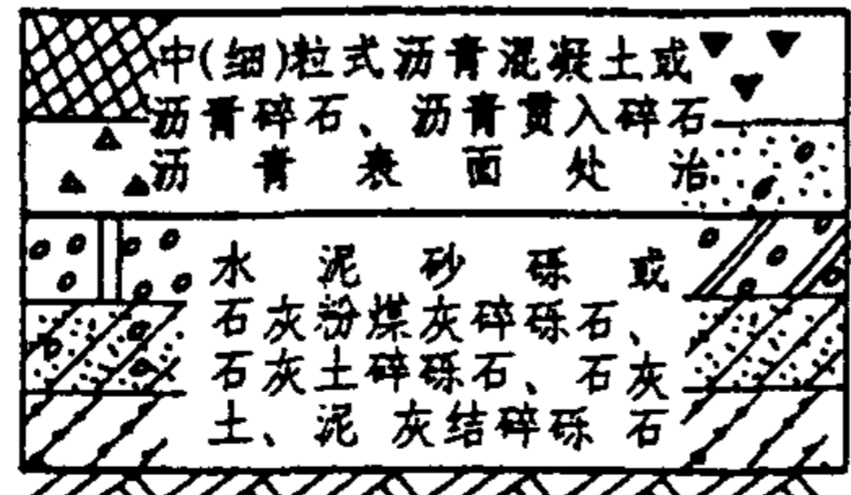 中(细)粒式沥青混凝土或
沥青碎石、沥青贯入碎石
沥青表面处治
水泥砂砾或
石灰粉煤灰碎砾石、
石灰土碎砾石、石灰
土、泥灰结碎砾石